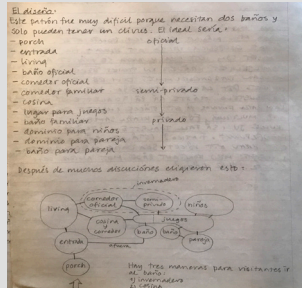 El diseño.
Este patrón fue muy difícil porque necesitan dos baños y
solo pueden tener un clivus. El ideal sería:
- porch oficial
- entrada
- living
- baño oficial
- comedor oficial
- comedor familiar semi-privado
- cosina
- lugar para juegos
- baño familiar privado
- dominio para niños
- dominio para pareja
- baño para pareja
Después de muchos discuciónes eligieron esto:
invernadero
living
comedor oficial
semi-privado
niños
cosina y comedor
juegos
baño
baño
pareja
entrada
afuera
porch
Hay tres maneras para visitantes ir
al baño:
1) invernadero
2) cosina